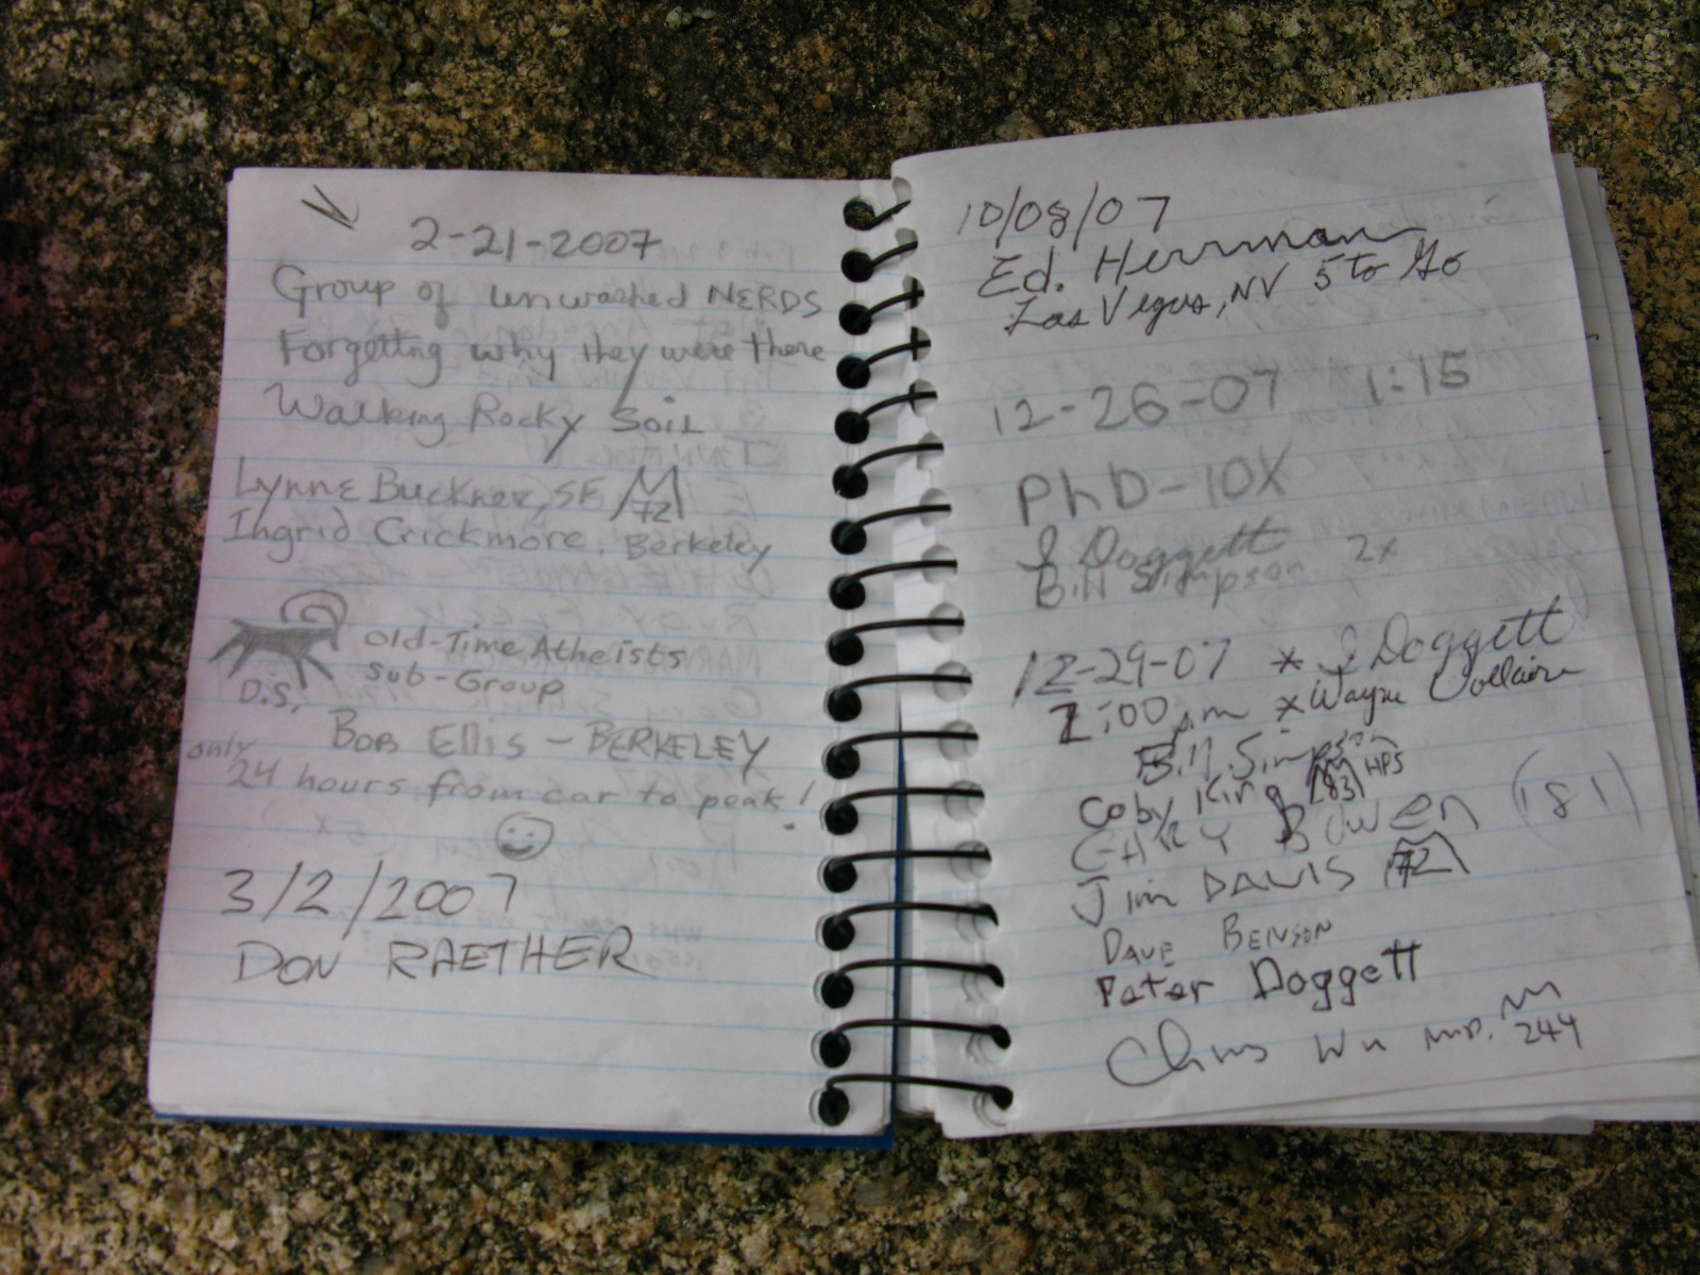 2-21-2007
Group of unwashed NERDS
Forgetting why they were there
Walking Rocky Soil
Lynne Buckner, SF 72
Ingrid Crickmore, Berkeley
Old-Time Atheists
Sub-Group
D.S.
Bob Ellis - BERKELEY
only
24 hours from car to peak!
3/2/2007
DON RAETHER
10/08/07
Ed. Herrman
Las Vegas, NV 5 To Go
12-26-07 1:15
PhD-10X
J Doggett
Bill Simpson 2x
12-29-07 * J Doggett
2:00 pm * Wayne Vollaire
Bill Simpson
Coby King 83 HPS
GARY BOWEN (181)
Jim DAVIS 72
DAVE BENSON
Peter Doggett
Chris Wu M.D. 244